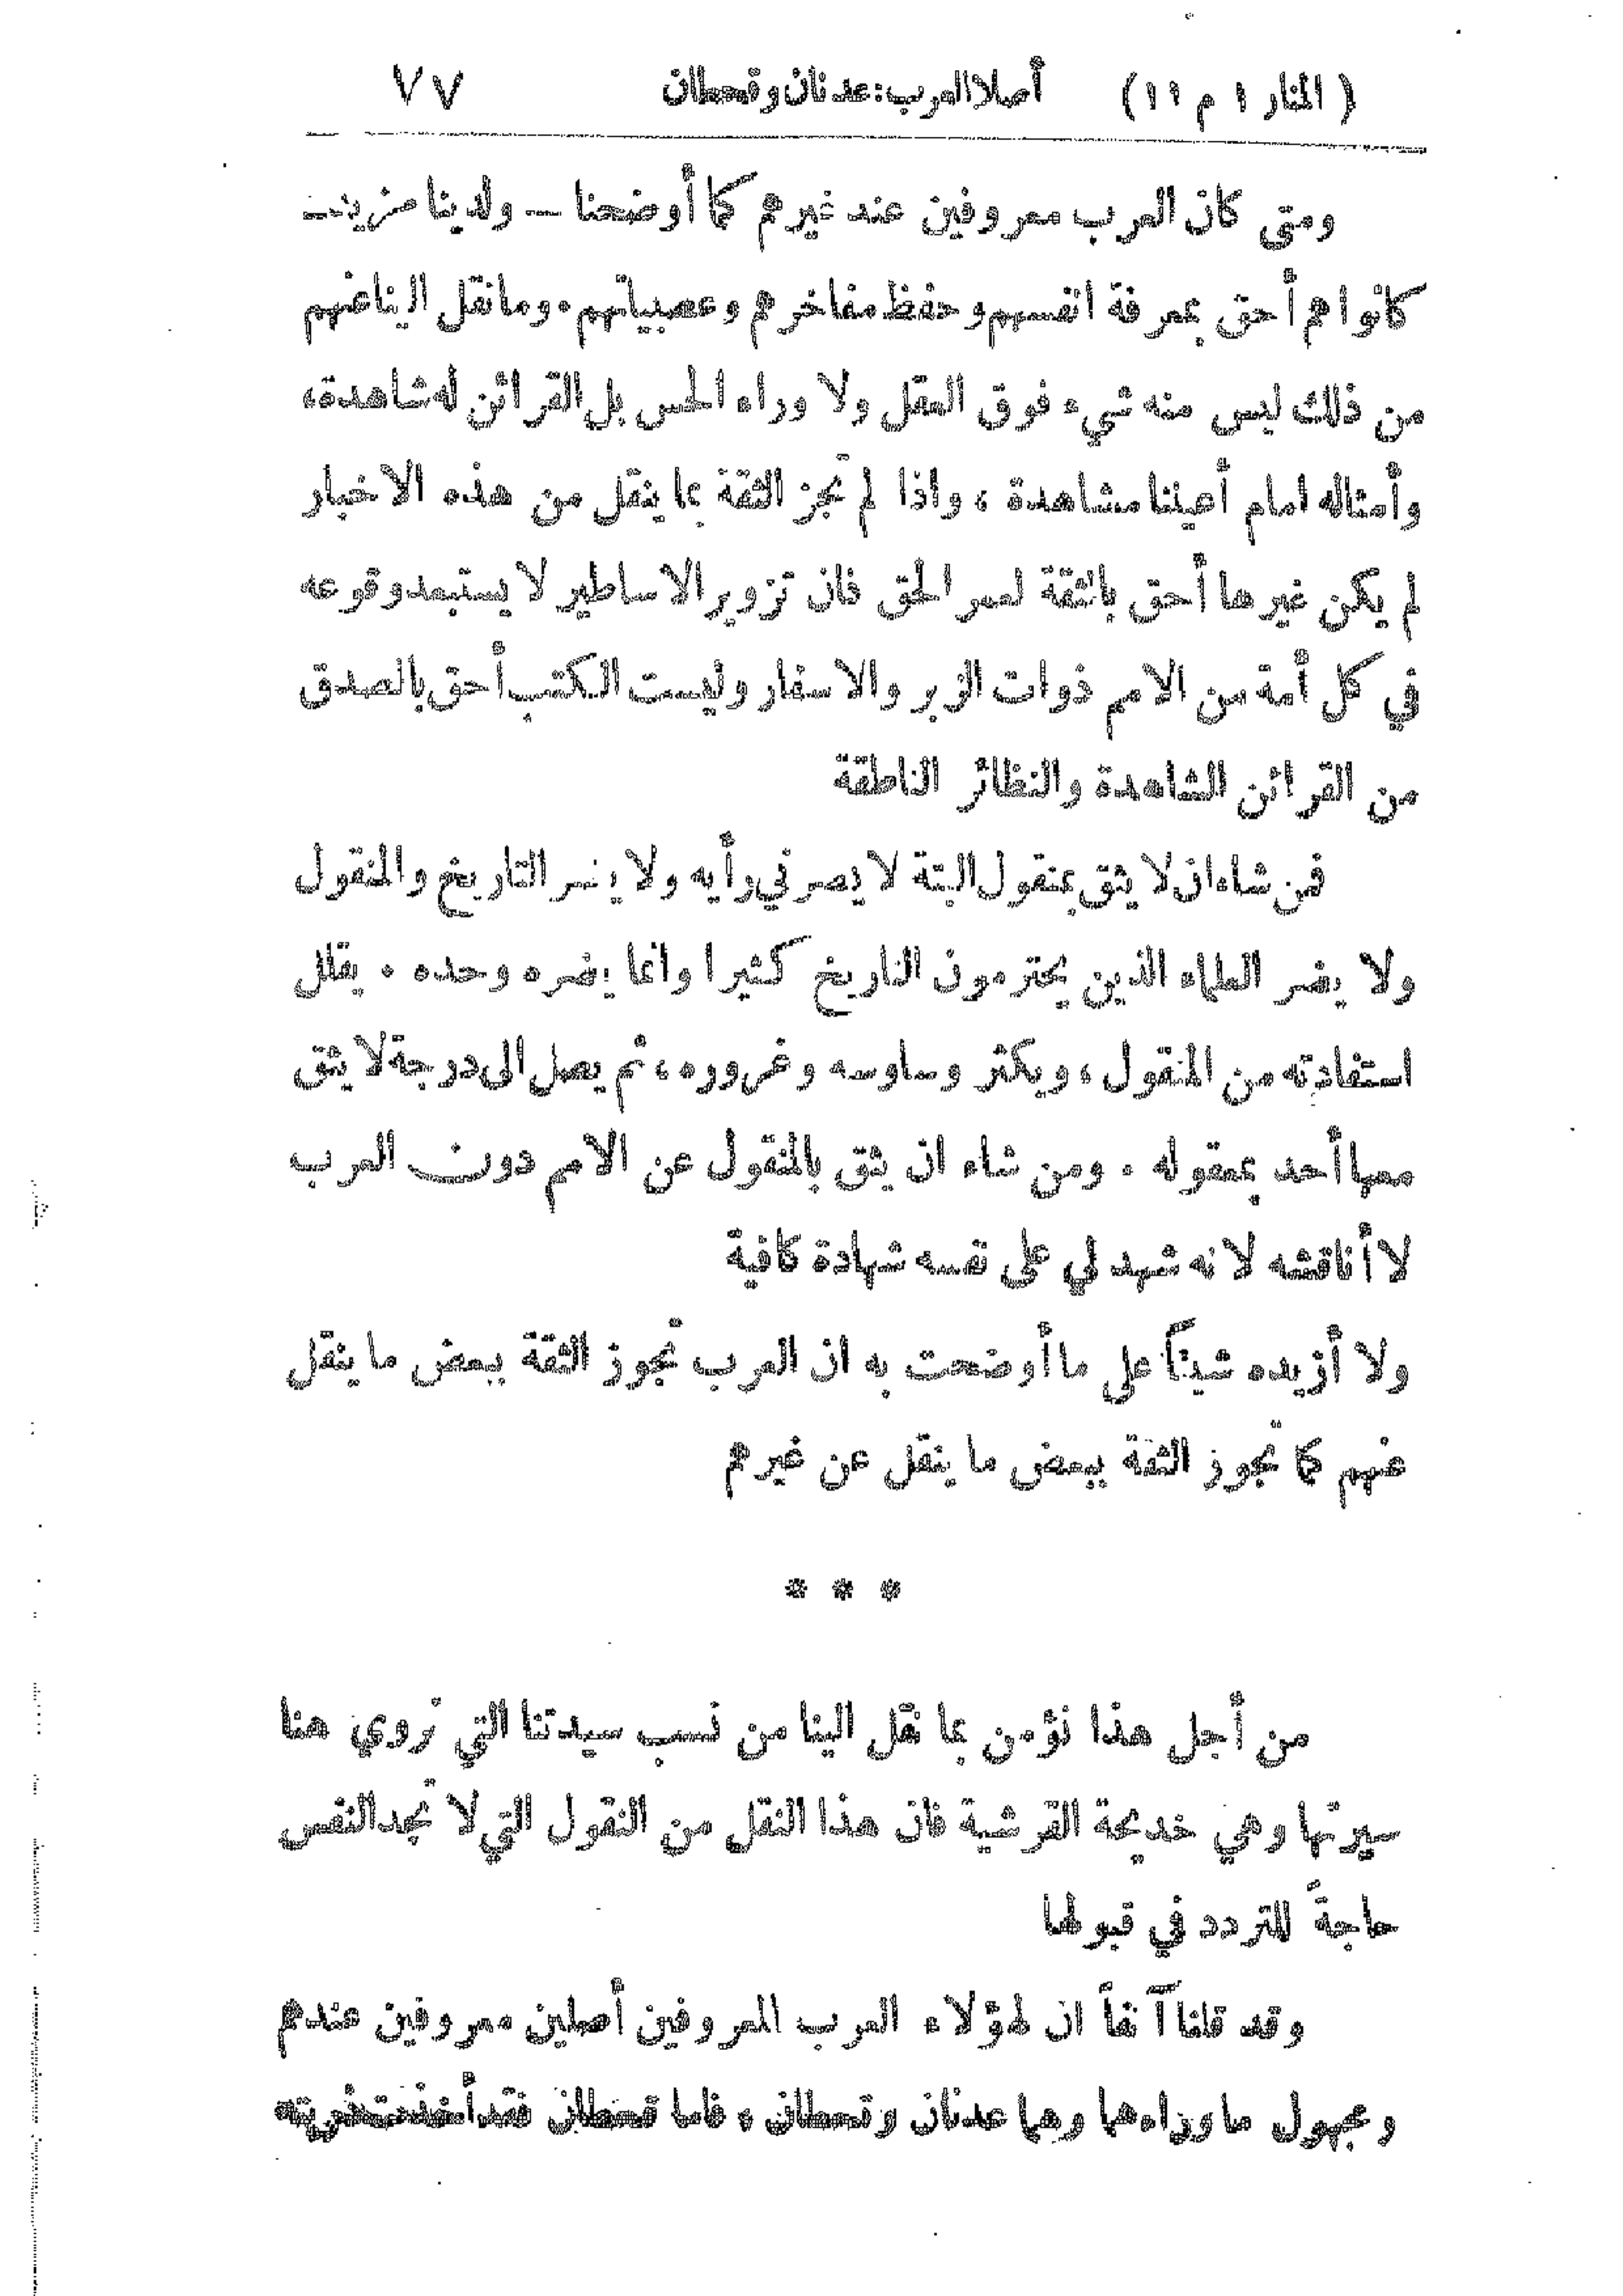 ( المنار ١ م ١١ ) أصلا العرب : عدنان وقحطان ٧٧
ومتى كان العرب معروفين عند غيرهم كما أوضحنا — ولدينا مزيد —
كانوا هم أحق بمعرفة انفسهم وحفظ مفاخرهم وعصبياتهم . وما نقل الينا عنهم
من ذلك ليس منه شيء فوق العقل ولا وراء الحس بل القرائن له شاهدة ،
وأمثاله امام أعيننا مشاهدة ، واذا لم تجز الثقة بما ينقل من هذه الاخبار
لم يكن غيرها أحق بالثقة لعمر الحق فان تزوير الاساطير لا يستبعد وقوعه
في كل أمة من الامم ذوات الزبر والاسفار وليست الكتب أحق بالصدق
من القرائن الشاهدة والنظائر الناطقة
فمن شاء ان لا يثق بمنقول البتة لا يضرني رأيه ولا يضر التاريخ والمنقول
ولا يضر العلماء الذين يحترمون التاريخ كثيرا وانما يضره وحده . يقلل
استفادته من المنقول ، ويكثر وساوسه وغروره ، ثم يصل الى درجة لا يثق
معها أحد بمقوله . ومن شاء ان يثق بالمنقول عن الامم دون العرب
لا أناقشه لانه شهد لي على نفسه شهادة كافية
ولا أزيده شيئاً على ما أوضحت به ان العرب تجوز الثقة ببعض ما ينقل
عنهم كما تجوز الثقة ببعض ما ينقل عن غيرهم
* * *
من أجل هذا نؤمن بما نقل الينا من نسب سيدتنا التي نروي هنا
سيرتها وهي خديجة القرشية فان هذا النقل من النقول التي لا تجد النفس
حاجةً للتردد في قبولها
وقد قلنا آنفاً ان لهؤلاء العرب المعروفين أصلين معروفين عندهم
ومجهول ما وراءهما وهما عدنان وقحطان ، فاما قحطان فقد أخذت ذريته